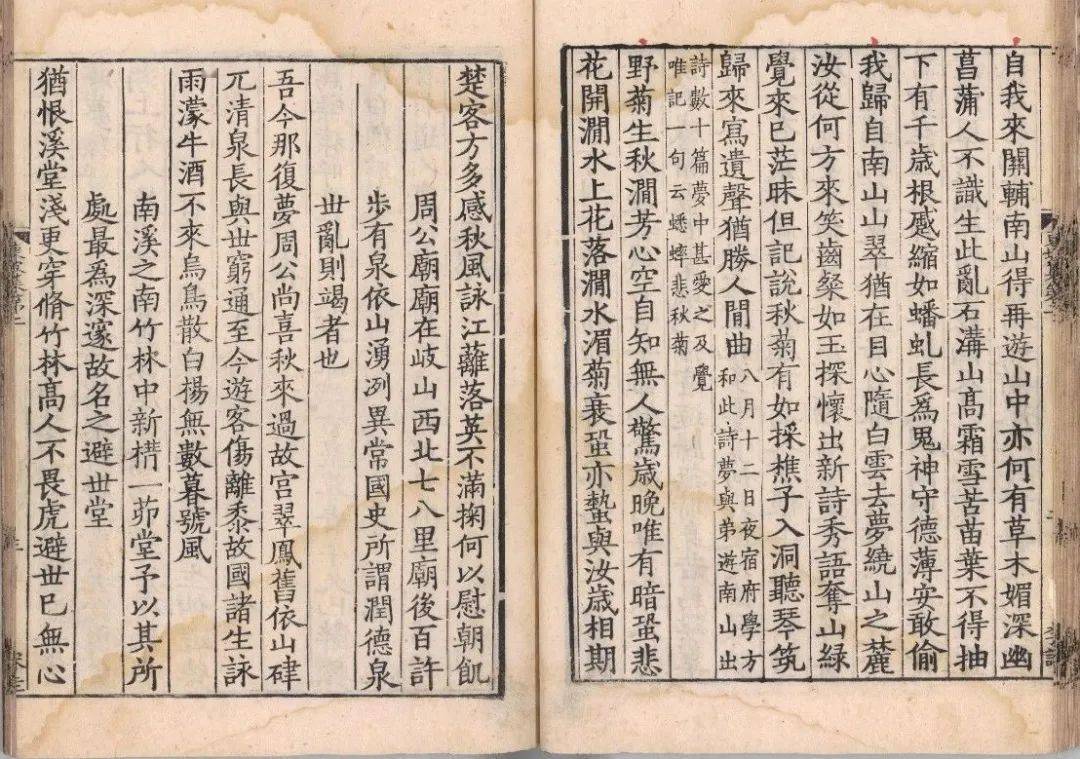 自我來關輔南山得再遊山中亦何有草木媚深幽
菖蒲人不識生此亂石溝山高霜雪苦苗葉不得抽
下有千歲根蹙縮如蟠虬長為鬼神守德薄安敢偷
我歸自南山山翠猶在目心隨白雲去夢繞山之麓
汝從何方來笑齒粲如玉探懷出新詩秀語奪山綠
覺來已茫昧但記說秋菊有如採樵子入洞聽琴筑
歸來寫遺聲猶勝人間曲
八月十二日夜宿府學方
和此詩夢與弟遊南山出
詩數十篇夢中甚愛之及覺
唯記一句云蟋蟀悲秋菊
野菊生秋澗芳心空自知無人驚歲晚唯有暗蛩悲
花開澗水上花落澗水湄菊衰蛩亦蟄與汝歲相期
楚客方多感秋風詠江蘺落英不滿掬何以慰朝飢
周公廟廟在岐山西北七八里廟後百許
步有泉依山湧冽異常國史所謂潤德泉
世亂則竭者也
吾今那復夢周公尚喜秋來過故宮翠鳳舊依山硉
兀清泉長與世窮通至今遊客傷離黍故國諸生詠
雨濛牛酒不來烏鳥散白楊無數暮號風
南溪之南竹林中新構一茆堂予以其所
處最為深邃故名之避世堂
猶恨溪堂淺更穿脩竹林高人不畏虎避世已無心